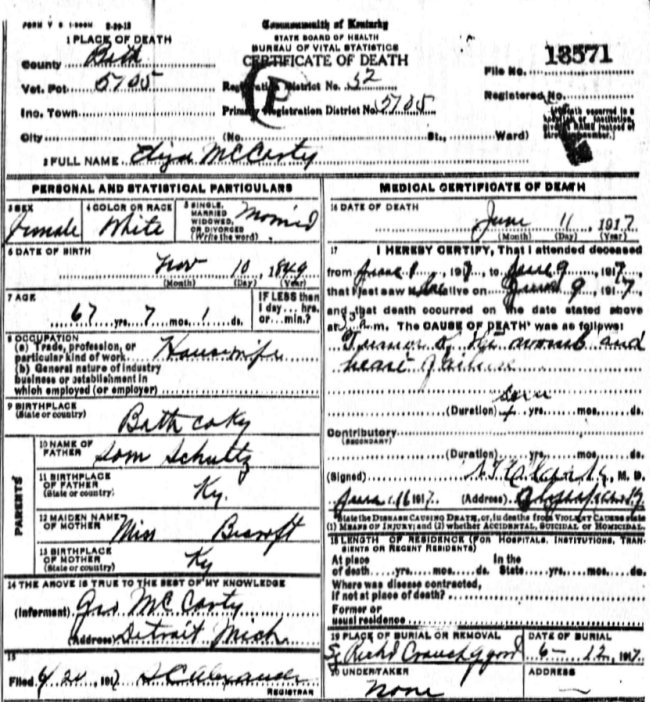 FORM V S 1-500M 8-20-12
Commonwealth of Kentucky
STATE BOARD OF HEALTH
BUREAU OF VITAL STATISTICS
CERTIFICATE OF DEATH
1 PLACE OF DEATH
County Bath
Vot. Pot. 5705
Ino. Town
City (No. St., Ward)
Registration District No. 32
Primary Registration District No. 5705
File No. 18571
Registered No.
2 FULL NAME Eliza McCarty
PERSONAL AND STATISTICAL PARTICULARS
3 SEX Female
4 COLOR OR RACE White
5 SINGLE, MARRIED, WIDOWED, OR DIVORCED (Write the word)
6 DATE OF BIRTH Nov 10, 1849
(Month) (Day) (Year)
7 AGE 67 yrs. 7 mos. 1 ds.
IF LESS than 1 day... hrs. or... min.?
8 OCCUPATION
(a) Trade, profession, or particular kind of work Housewife
(b) General nature of industry business or establishment in which employed (or employer)
9 BIRTHPLACE (State or country) Bath co Ky
PARENTS
10 NAME OF FATHER Sam Schultz
11 BIRTHPLACE OF FATHER (State or country) Ky.
12 MAIDEN NAME OF MOTHER Miss
13 BIRTHPLACE OF MOTHER (State or country) Ky
14 THE ABOVE IS TRUE TO THE BEST OF MY KNOWLEDGE
(Informant) Geo McCarty
(Address) Detroit Mich
15
Filed 1917 S C Alexander
REGISTRAR
MEDICAL CERTIFICATE OF DEATH
16 DATE OF DEATH June 11, 1917
(Month) (Day) (Year)
17 I HEREBY CERTIFY, That I attended deceased
from June 1, 1917 to June 9, 1917,
that I last saw alive on June 9, 1917
and that death occurred on the date stated above
at m. The CAUSE OF DEATH was as follows:
Tumor of the womb and
heart failure
(Duration) yrs. mos. ds.
Contributory
(SECONDARY)
(Duration) yrs. mos. ds.
(Signed) M. D.
June 16 1917. (Address)
State the DISEASE CAUSING DEATH, or, in deaths from VIOLENT CAUSES state
(1) MEANS OF INJURY; and (2) whether ACCIDENTAL, SUICIDAL or HOMICIDAL.
18 LENGTH OF RESIDENCE (FOR HOSPITALS, INSTITUTIONS, TRANSIENTS OR RECENT RESIDENTS)
At place of death yrs. mos. ds. In the State yrs. mos. ds.
Where was disease contracted,
if not at place of death?
Former or
usual residence
19 PLACE OF BURIAL OR REMOVAL
DATE OF BURIAL 6-12, 1917
20 UNDERTAKER None
ADDRESS